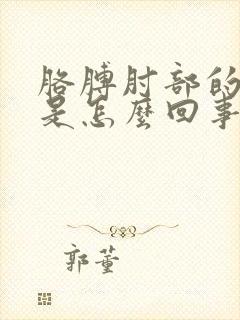 胳膊肘部的
是怎麼回事
郭董